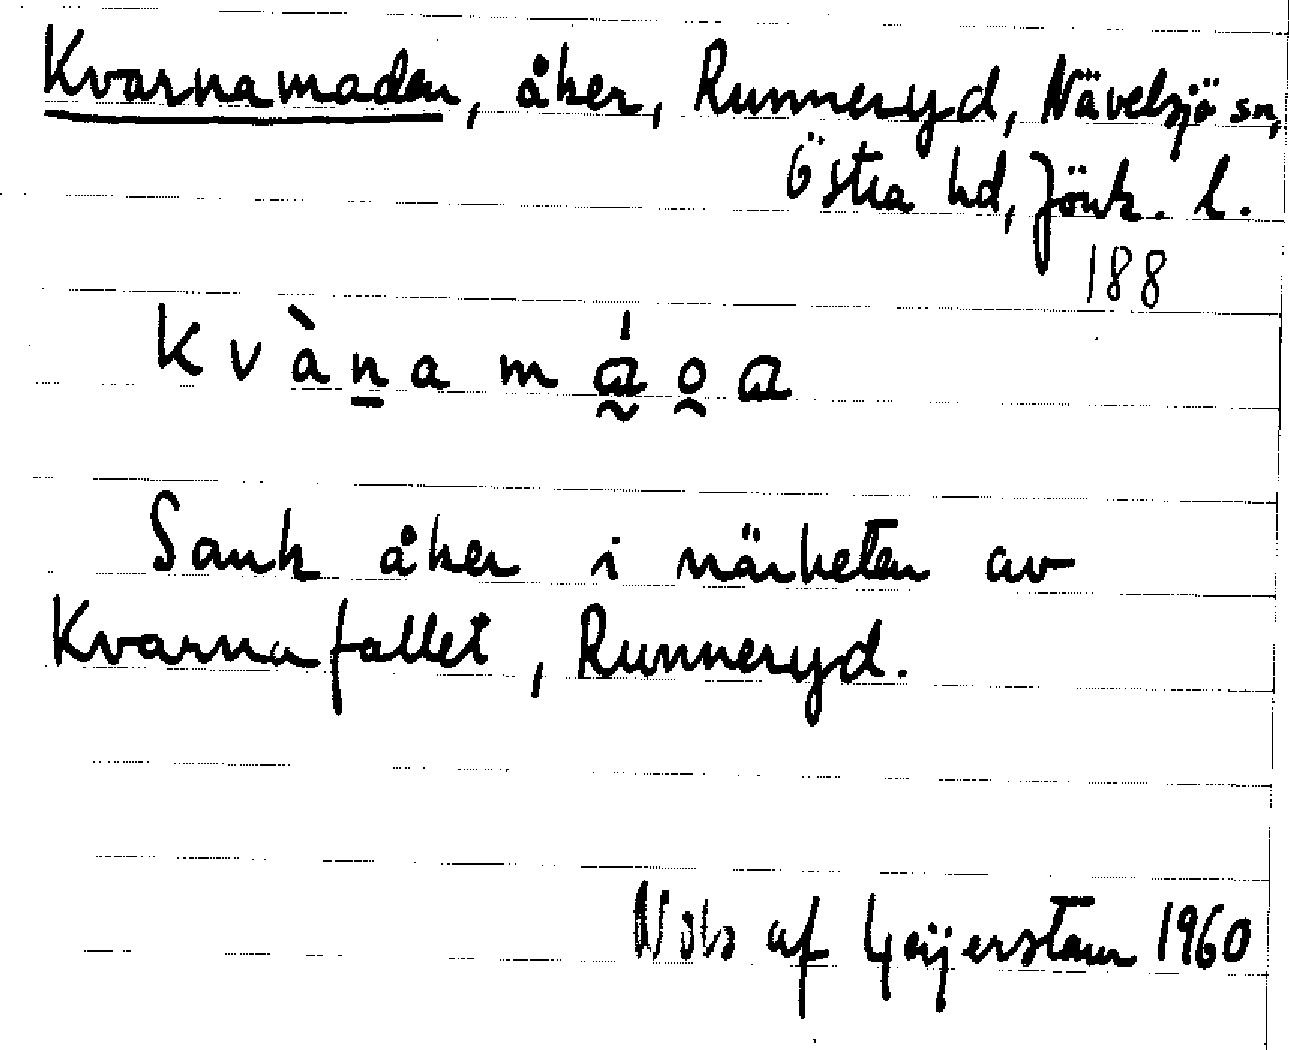 Kvarnamaden, åker, Runneryd, Nävelsjö sn,
Östra hd, Jönk. l.
188
k v à n a m á o a
Sank åker i närheten av
Kvarnafallet, Runneryd.
af Geijerstam 1960